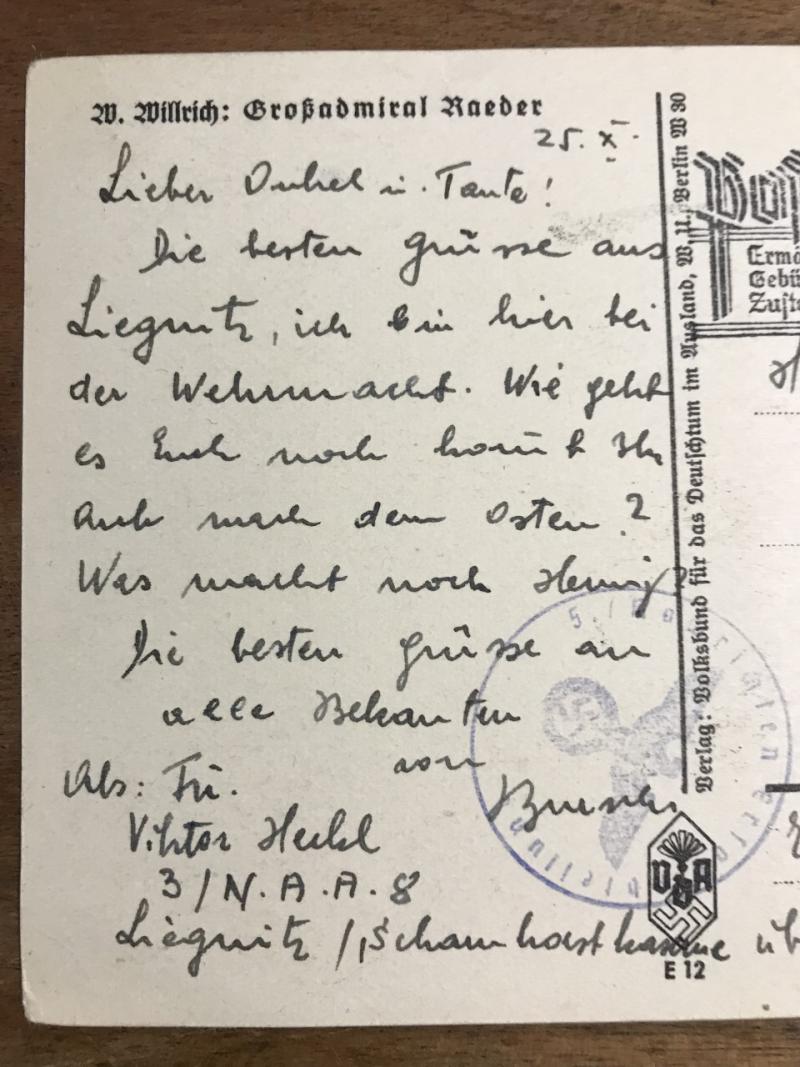 W. Willrich: Großadmiral Raeder
25. X.
Lieber Onkel u. Tante!
Die besten Grüsse aus
Liegnitz, ich bin hier bei
der Wehrmacht. Wie geht
es Euch noch kommt Ihr
Auch nach dem Osten?
Was macht noch
Die besten Grüsse an
alle Bekanten
von
Abs: Fu.
Viktor Heckl
3/N.A.A.8
Liegnitz /, Scharnhorstkaserne üb
Verlag: Volksbund für das Deutschtum im Ausland, W. U., Berlin W 30
Ermä
Gebü
Zuste
VDA
E 12